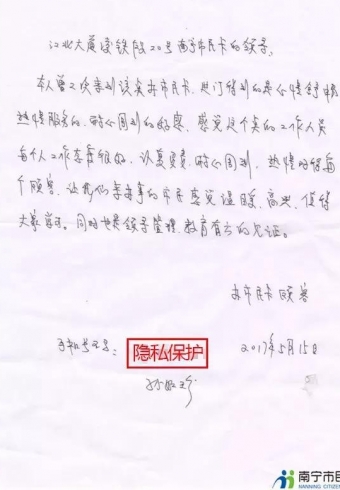 江北大道凌铁段20号南宁市民卡的领导:
本人曾2次来到该处办市民卡,
热情服务的,耐心周到的好感,感觉这个真的工作人员
每个人工作态度很好,认真负责,耐心周到,热情对待每
个顾客,让我们来办事的市民感觉温暖、高兴,值得
大家学习。同时也是领导管理、教育有方的见证。
办市民卡顾客
手机号码:
隐私保护
2017年5月15日
南宁市民
NANNING CITIZEN